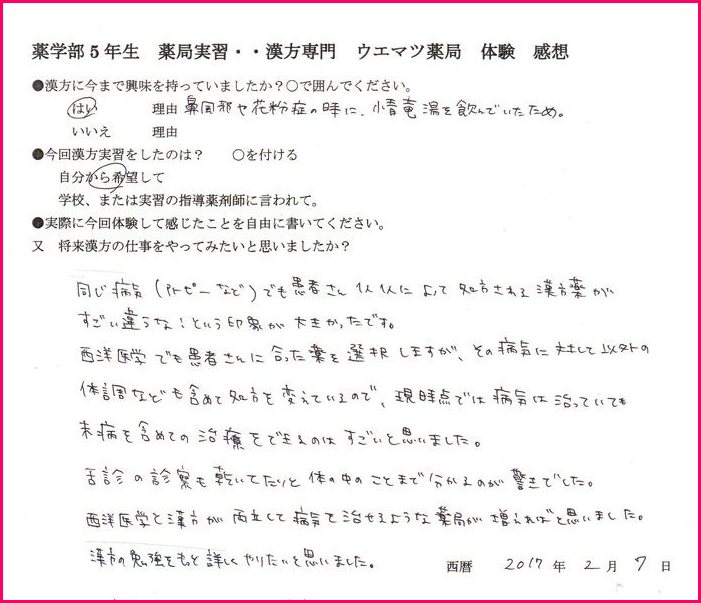 薬学部５年生　薬局実習・・漢方専門　ウエマツ薬局　体験　感想
●漢方に今まで興味を持っていましたか？○で囲んでください。
はい　理由 鼻風邪や花粉症の時に、小青竜湯を飲んでいたため。
いいえ　理由
●今回漢方実習をしたのは？　○を付ける
自分から希望して
学校、または実習の指導薬剤師に言われて。
●実際に今回体験して感じたことを自由に書いてください。
又　将来漢方の仕事をやってみたいと思いましたか？
同じ病気（アトピーなど）でも患者さん個々によって処方される漢方薬が
すごい違うな！という印象が大きかったです。
西洋医学でも患者さんに合った薬を選択しますが、その病気に対して以外の
体調なども含めて処方を変えているので、現時点では病気は治っていても
未病を含めての治療をできるのはすごいと思いました。
舌診の診察も乾いてたりと体の中のことまで分かるのが驚きでした。
西洋医学と漢方が両立して病気を治せるような薬局が増えればと思いました。
漢方の勉強をもっと詳しくやりたいと思いました。
西暦　2017年　2月　7日